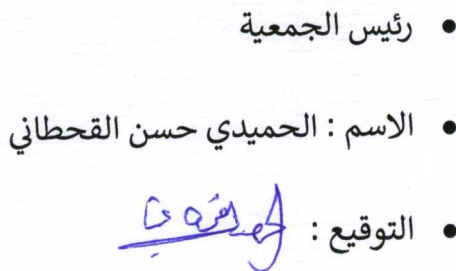 • رئيس الجمعية
• الاسم : الحميدي حسن القحطاني
• التوقيع :